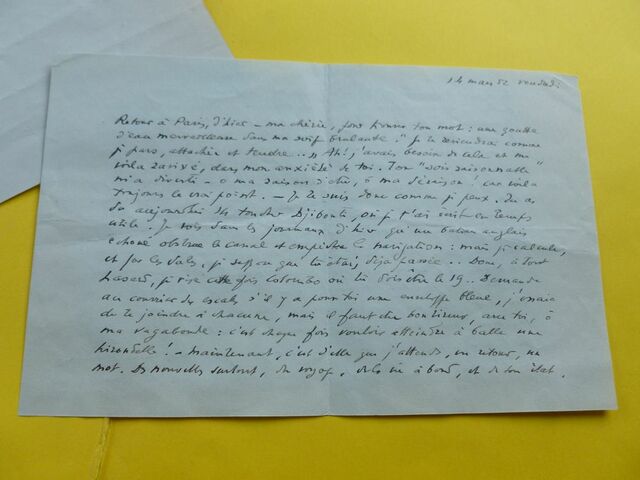 14 mars 52 vendredi
Retour à Paris, d'hier – ma chérie, pour trouver ton mot : une goutte
d'eau merveilleuse dans ma soif brûlante. "Je te reviendrai comme
je pars, attachée et tendre.." Ah! j'avais besoin de cela et me
voilà ravivé, dans mon anxiété de toi. Ton "sois raisonnable"
m'a diverti – ô ma saison d'été, ô ma déraison! car voilà
toujours le vrai point. – Je te suis donc comme je peux. Tu as
dû aujourd'hui 14 toucher Djibouti, où je t'ai écrit en temps
utile. Je vois dans les journaux d'hier qu'un bateau anglais
échoué obstrue le canal et empêche la navigation : mais je calcule,
et par les dates, je suppose que tu étais déjà passée... Donc, à tout
hasard, je vise cette fois Colombo où tu dois être le 19.. Demande
au courrier des escales s'il y a pour toi une enveloppe bleue, j'essaie
de te joindre à chacune, mais il faut du bonheur, avec toi, ô
ma vagabonde : c'est chaque fois vouloir atteindre à balle une
hirondelle! – Maintenant, c'est d'elle que j'attends, un retour, un
mot. Des nouvelles surtout, du voyage, de la vie à bord, et de ton état.